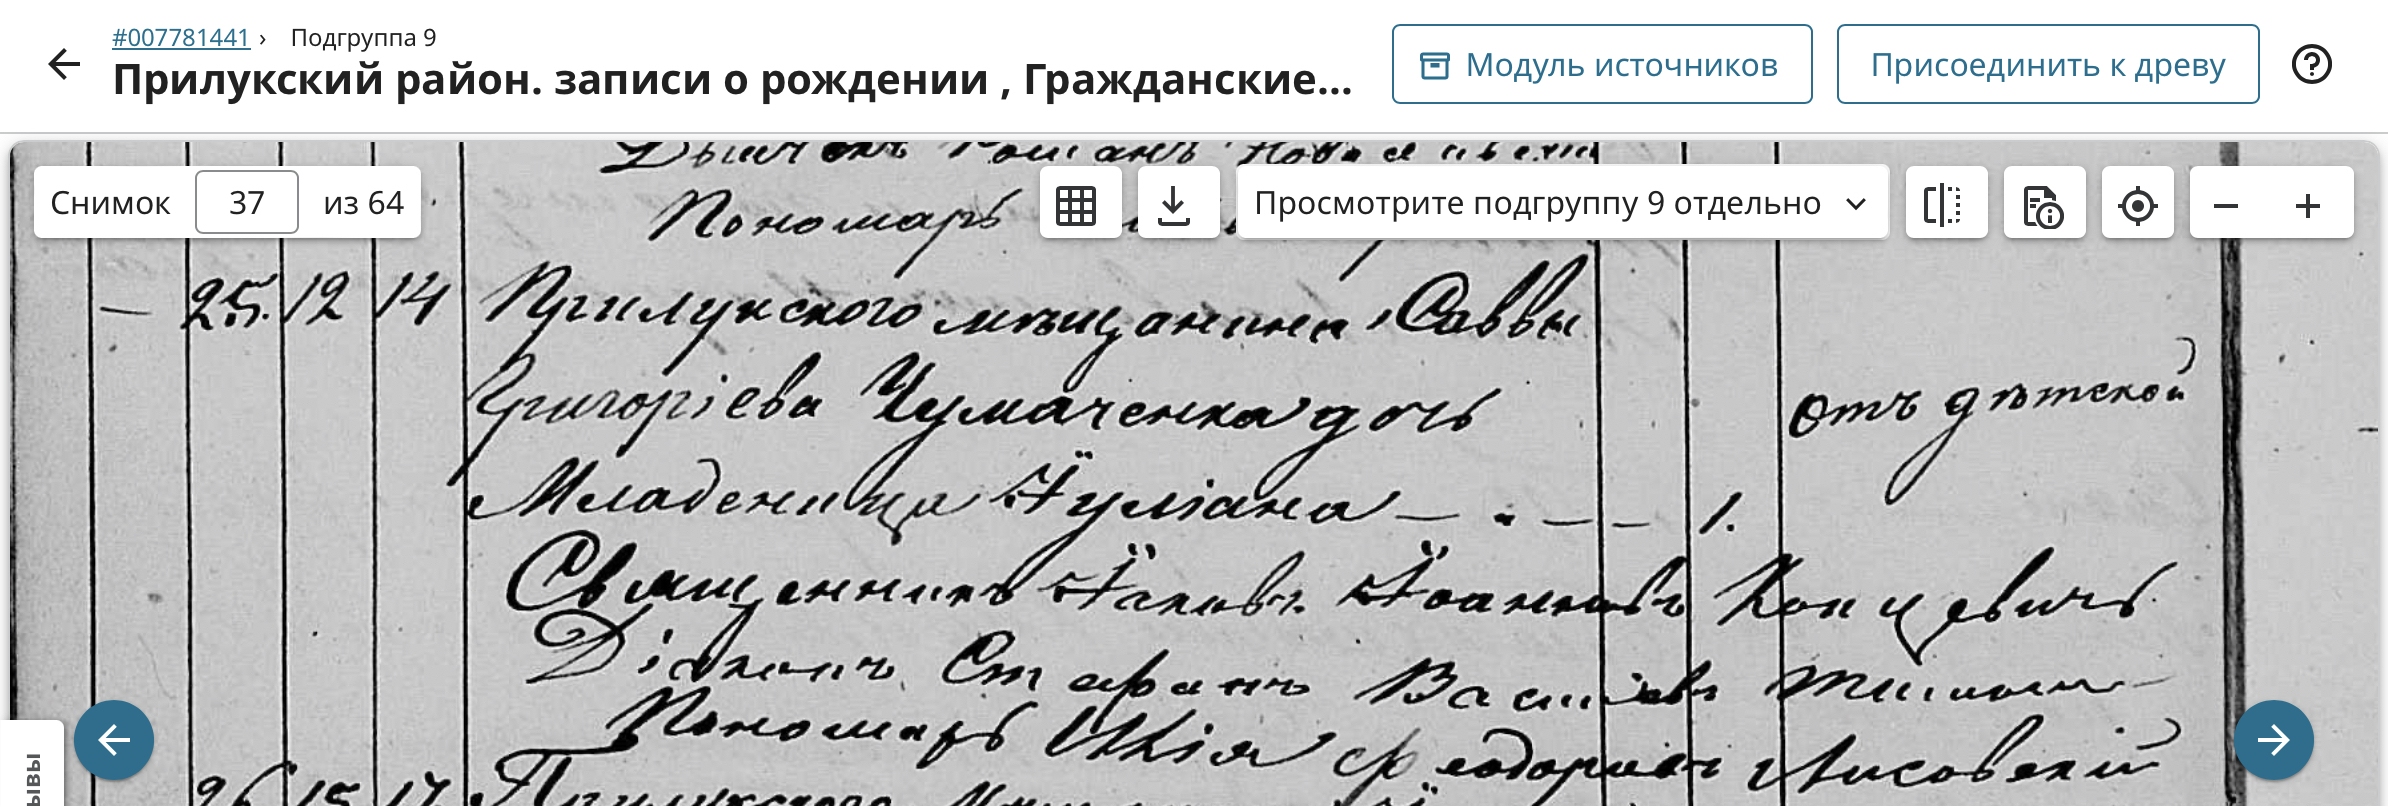 #007781441 › Подгруппа 9
Прилукский район. записи о рождении , Гражданские...
Модуль источников
Присоединить к древу
Снимок 37 из 64
Просмотрите подгруппу 9 отдельно
Пономарь
— 25. 12 14 Прилукского мѣщанина Саввы
Григоріева Чумаченка дочь
отъ дѣтской
Младеница Іуліана — - — — 1.
Священникъ Іаковъ Іоанновъ Концевичъ
Діаконъ Стефанъ Василіевъ
Пономарь Илія Ѳеодоровъ Лисовскій
26 15 17 Прилукского
ывы